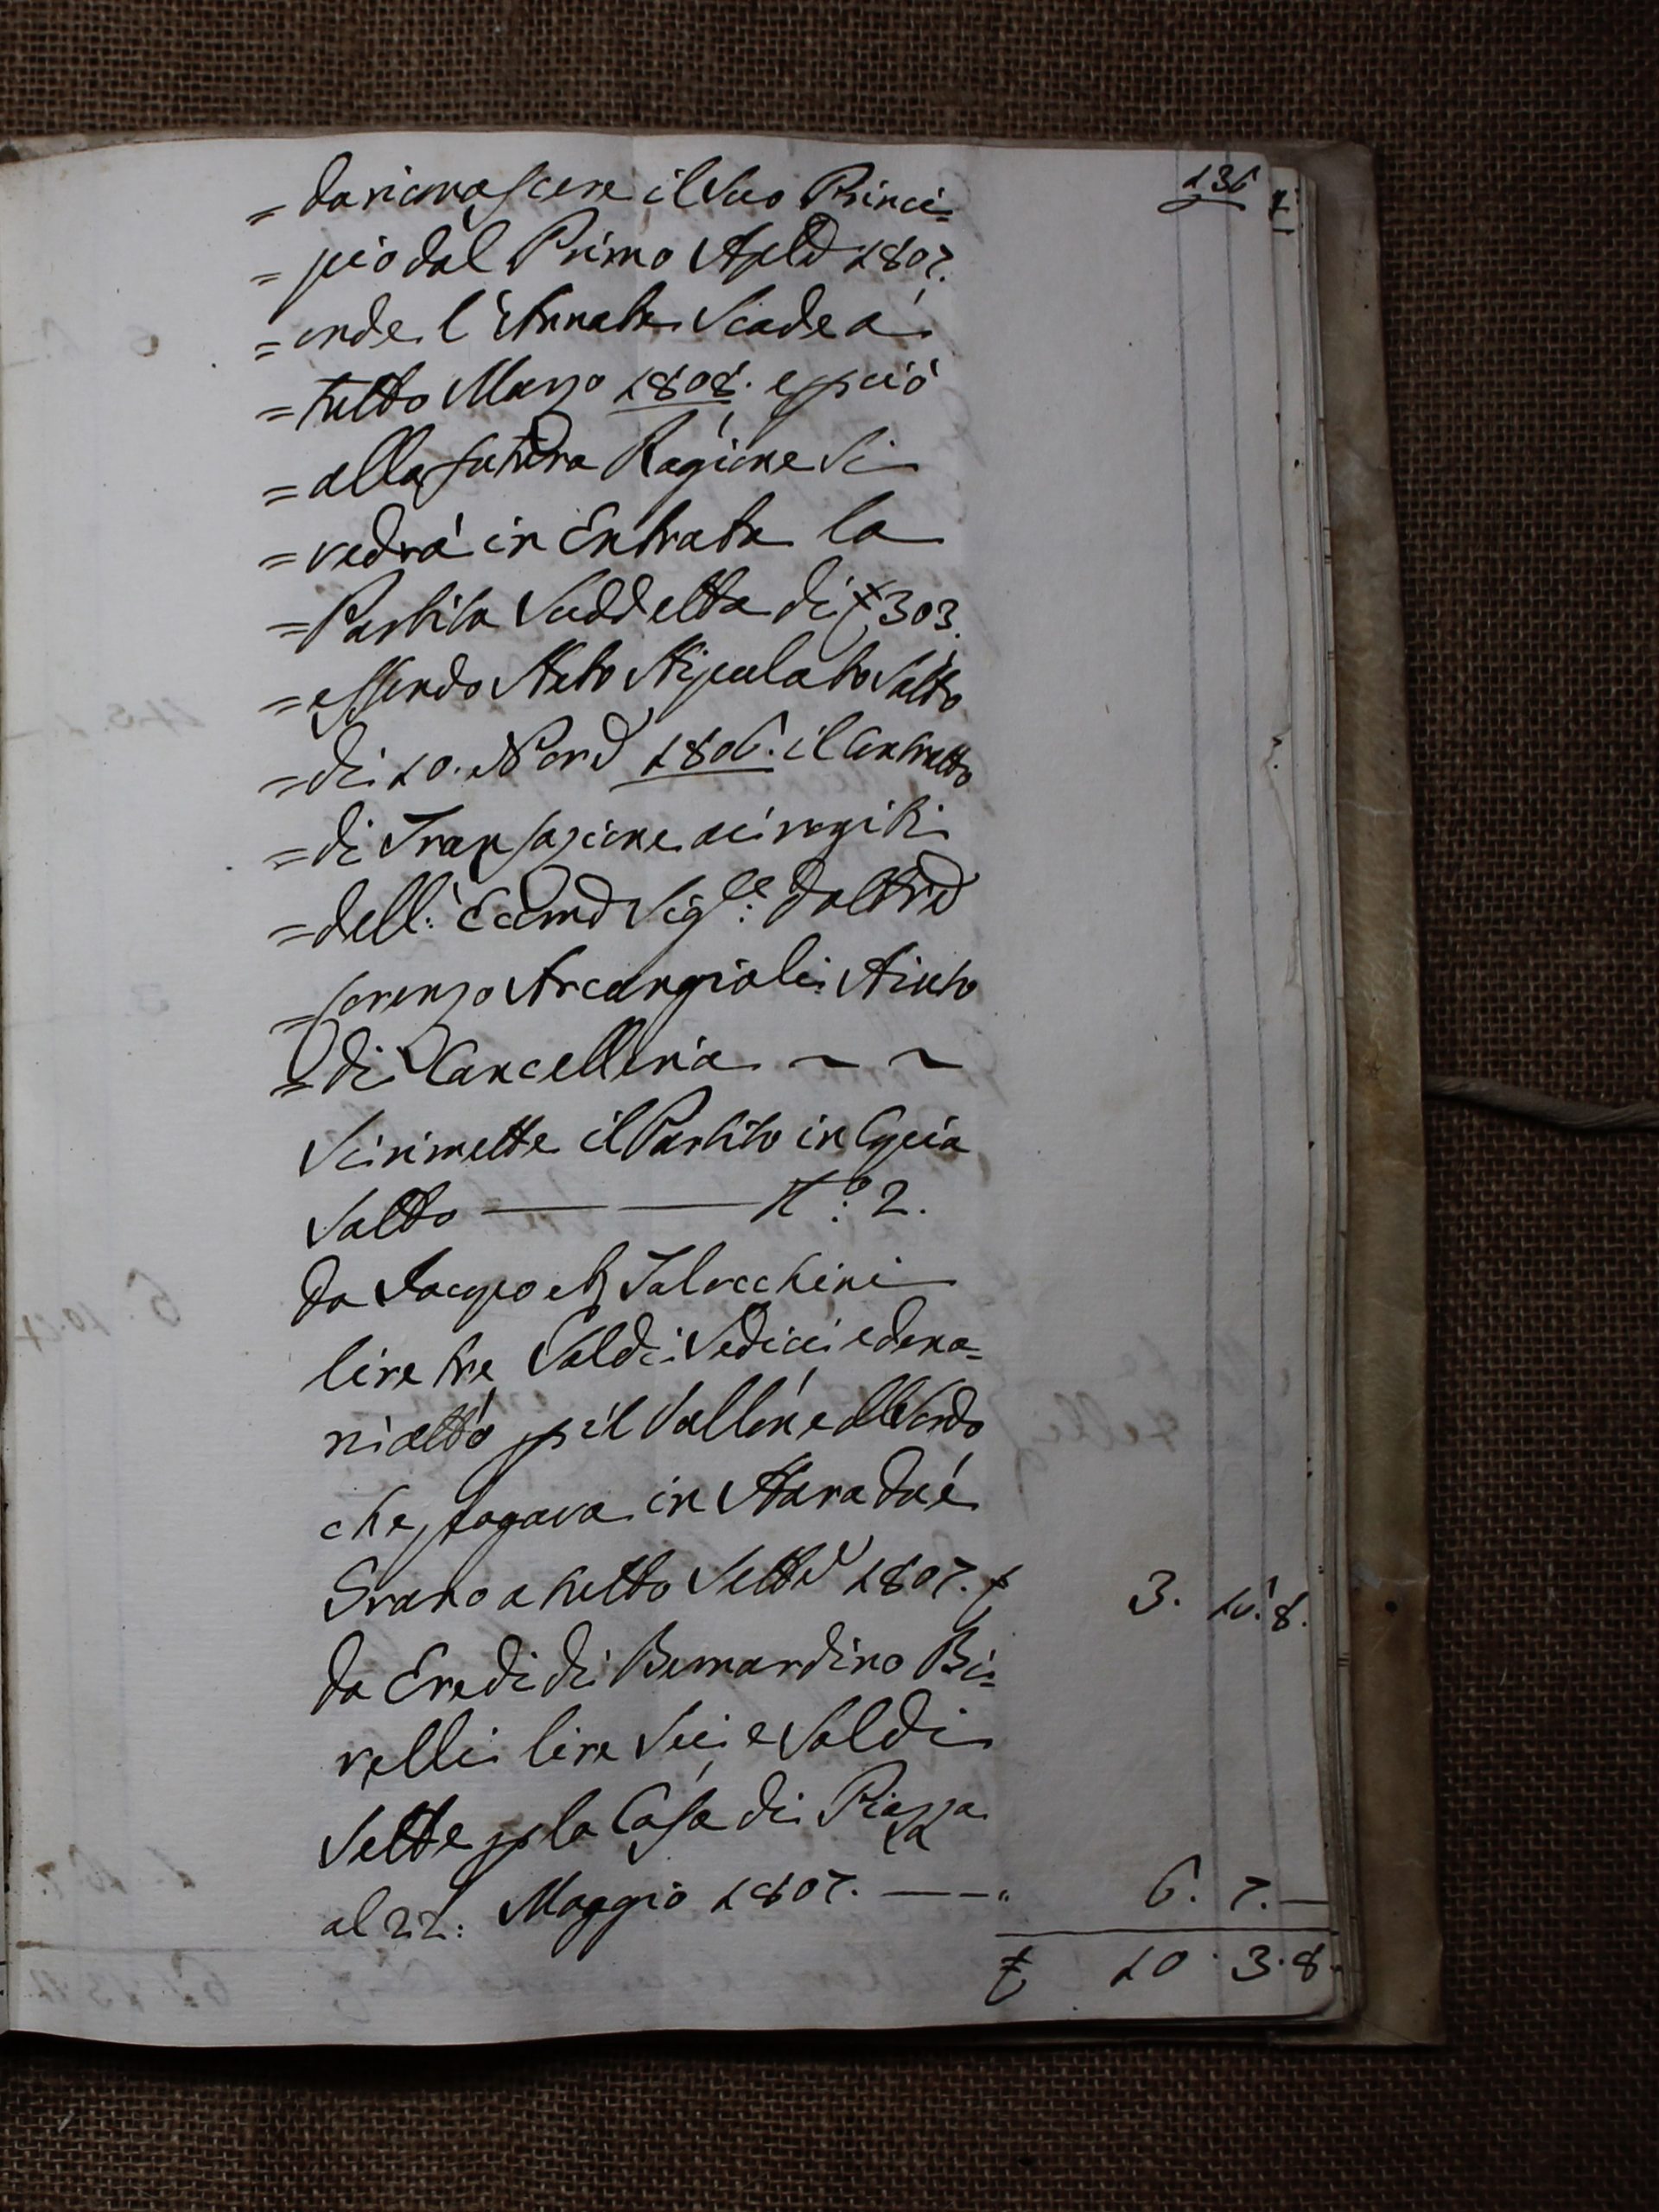 136
= da riconoscere il Suo Princi=
= pio dal Primo Aple 1807.
= onde l'Annata Scade a'
= tutto Marzo 1808. e p ciò
= alla futura Ragione Si
= vedrà in Entrata la
= Partita Suddetta di £ 303.
= essendo Stato Stipulato Sotto
= di 10. Nove 1806. il Contratto
= di Transazione ai rogiti
= dell' Eccmo Sigre: Dottre
= Lorenzo Arcangioli Aiuto
= di Cancelleria ~ ~
Si rimette il Partito in Copia
Sotto — — N.o 2.
da Jacopo M Talocchini
lire tre Soldi Sedici e dena=
ri otto p il Vallone al Sordo
che pagava in Stara due
Grano a tutto Sette 1807. £ 3. 16. 8.
da Eredi di Bernardino Bi=
relli lire Sei, e Soldi
Sette p la Casa di Piazza
al 22: Maggio 1807. — — " 6. 7. —
£ 10. 3. 8.